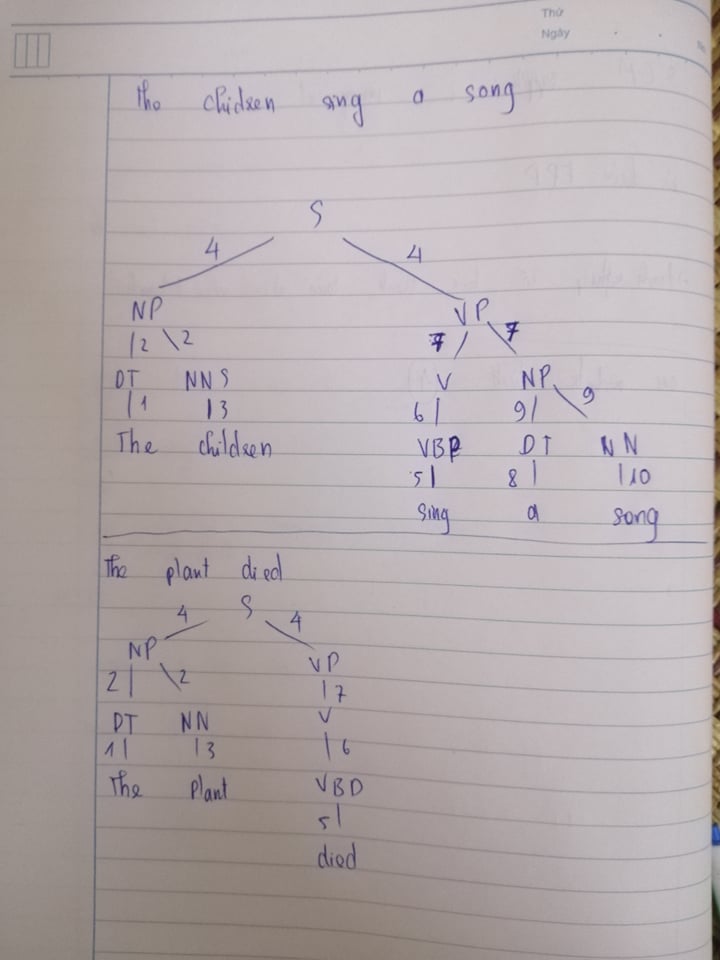 Thứ
Ngày
The chidren sing a song
S
4 4
NP VP
2 2 7 7
DT NNS V NP 9
1 3 6 9
The children VBP DT NN
5 8 10
sing a song
The plant died
S
4 4
NP VP
2 2 7
DT NN V
1 3 6
The plant VBD
5
died